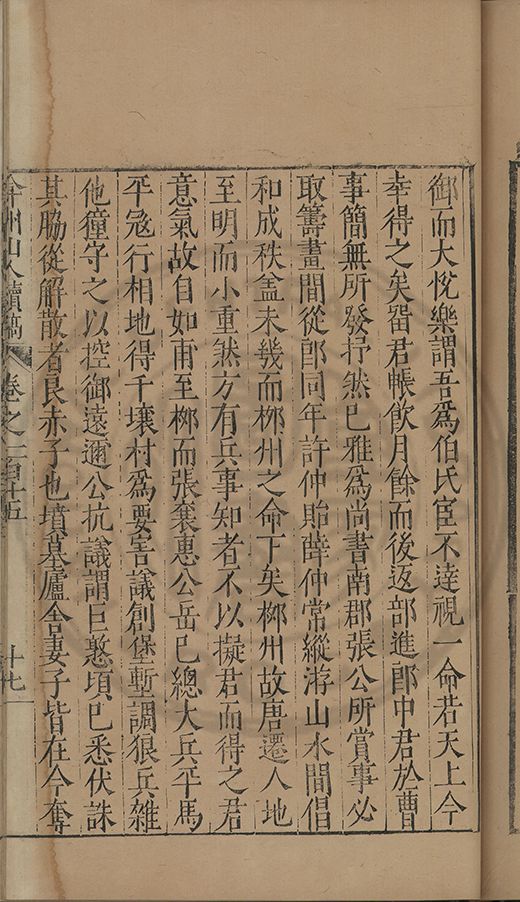 御而大悅樂謂吾爲伯氏宦不達視一命若天上今
幸得之矣畱君帳飲月餘而後返部進郎中君於曹
事簡無所發抒然已雅爲尚書南郡張公所賞事必
取籌畫間從郎同年許仲貽薛仲常縱游山水間倡
和成秩盖未幾而柳州之命下矣柳州故唐遷人地
至明而小重然方有兵事知者不以擬君而得之君
意氣故自如甫至柳而張襄惠公岳已總大兵平馬
平冦行相地得千壤村爲要害議創堡塹調狼兵雜
他獞守之以控御遠邇公抗議謂巨憝頃已悉伏誅
其脇從解散者良赤子也墳墓廬舍妻子皆在今奪
弇州山人續稿 卷之一百廿五 十七